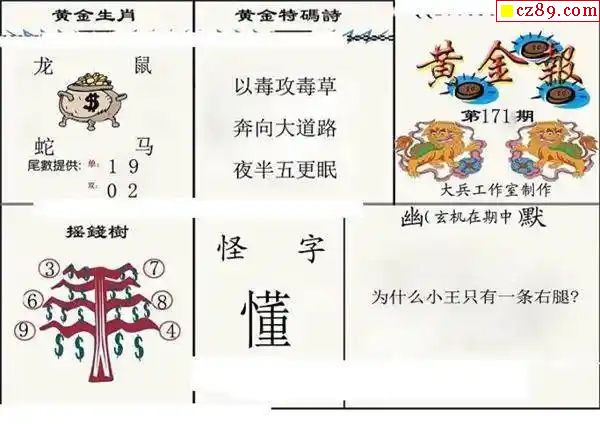 cz89.com
黄金生肖
龙 鼠
$
蛇 马
尾數提供: 单: 1 9
双: 0 2
黄金特碼詩
以毒攻毒草
奔向大道路
夜半五更眠
黄金報
第171期
大兵工作室制作
摇錢樹
③ ⑦
⑥ ⑧
⑨ ④
$ $ $ $ $ $ $ $
怪字
懂
幽(玄机在期中)默
为什么小王只有一条右腿?